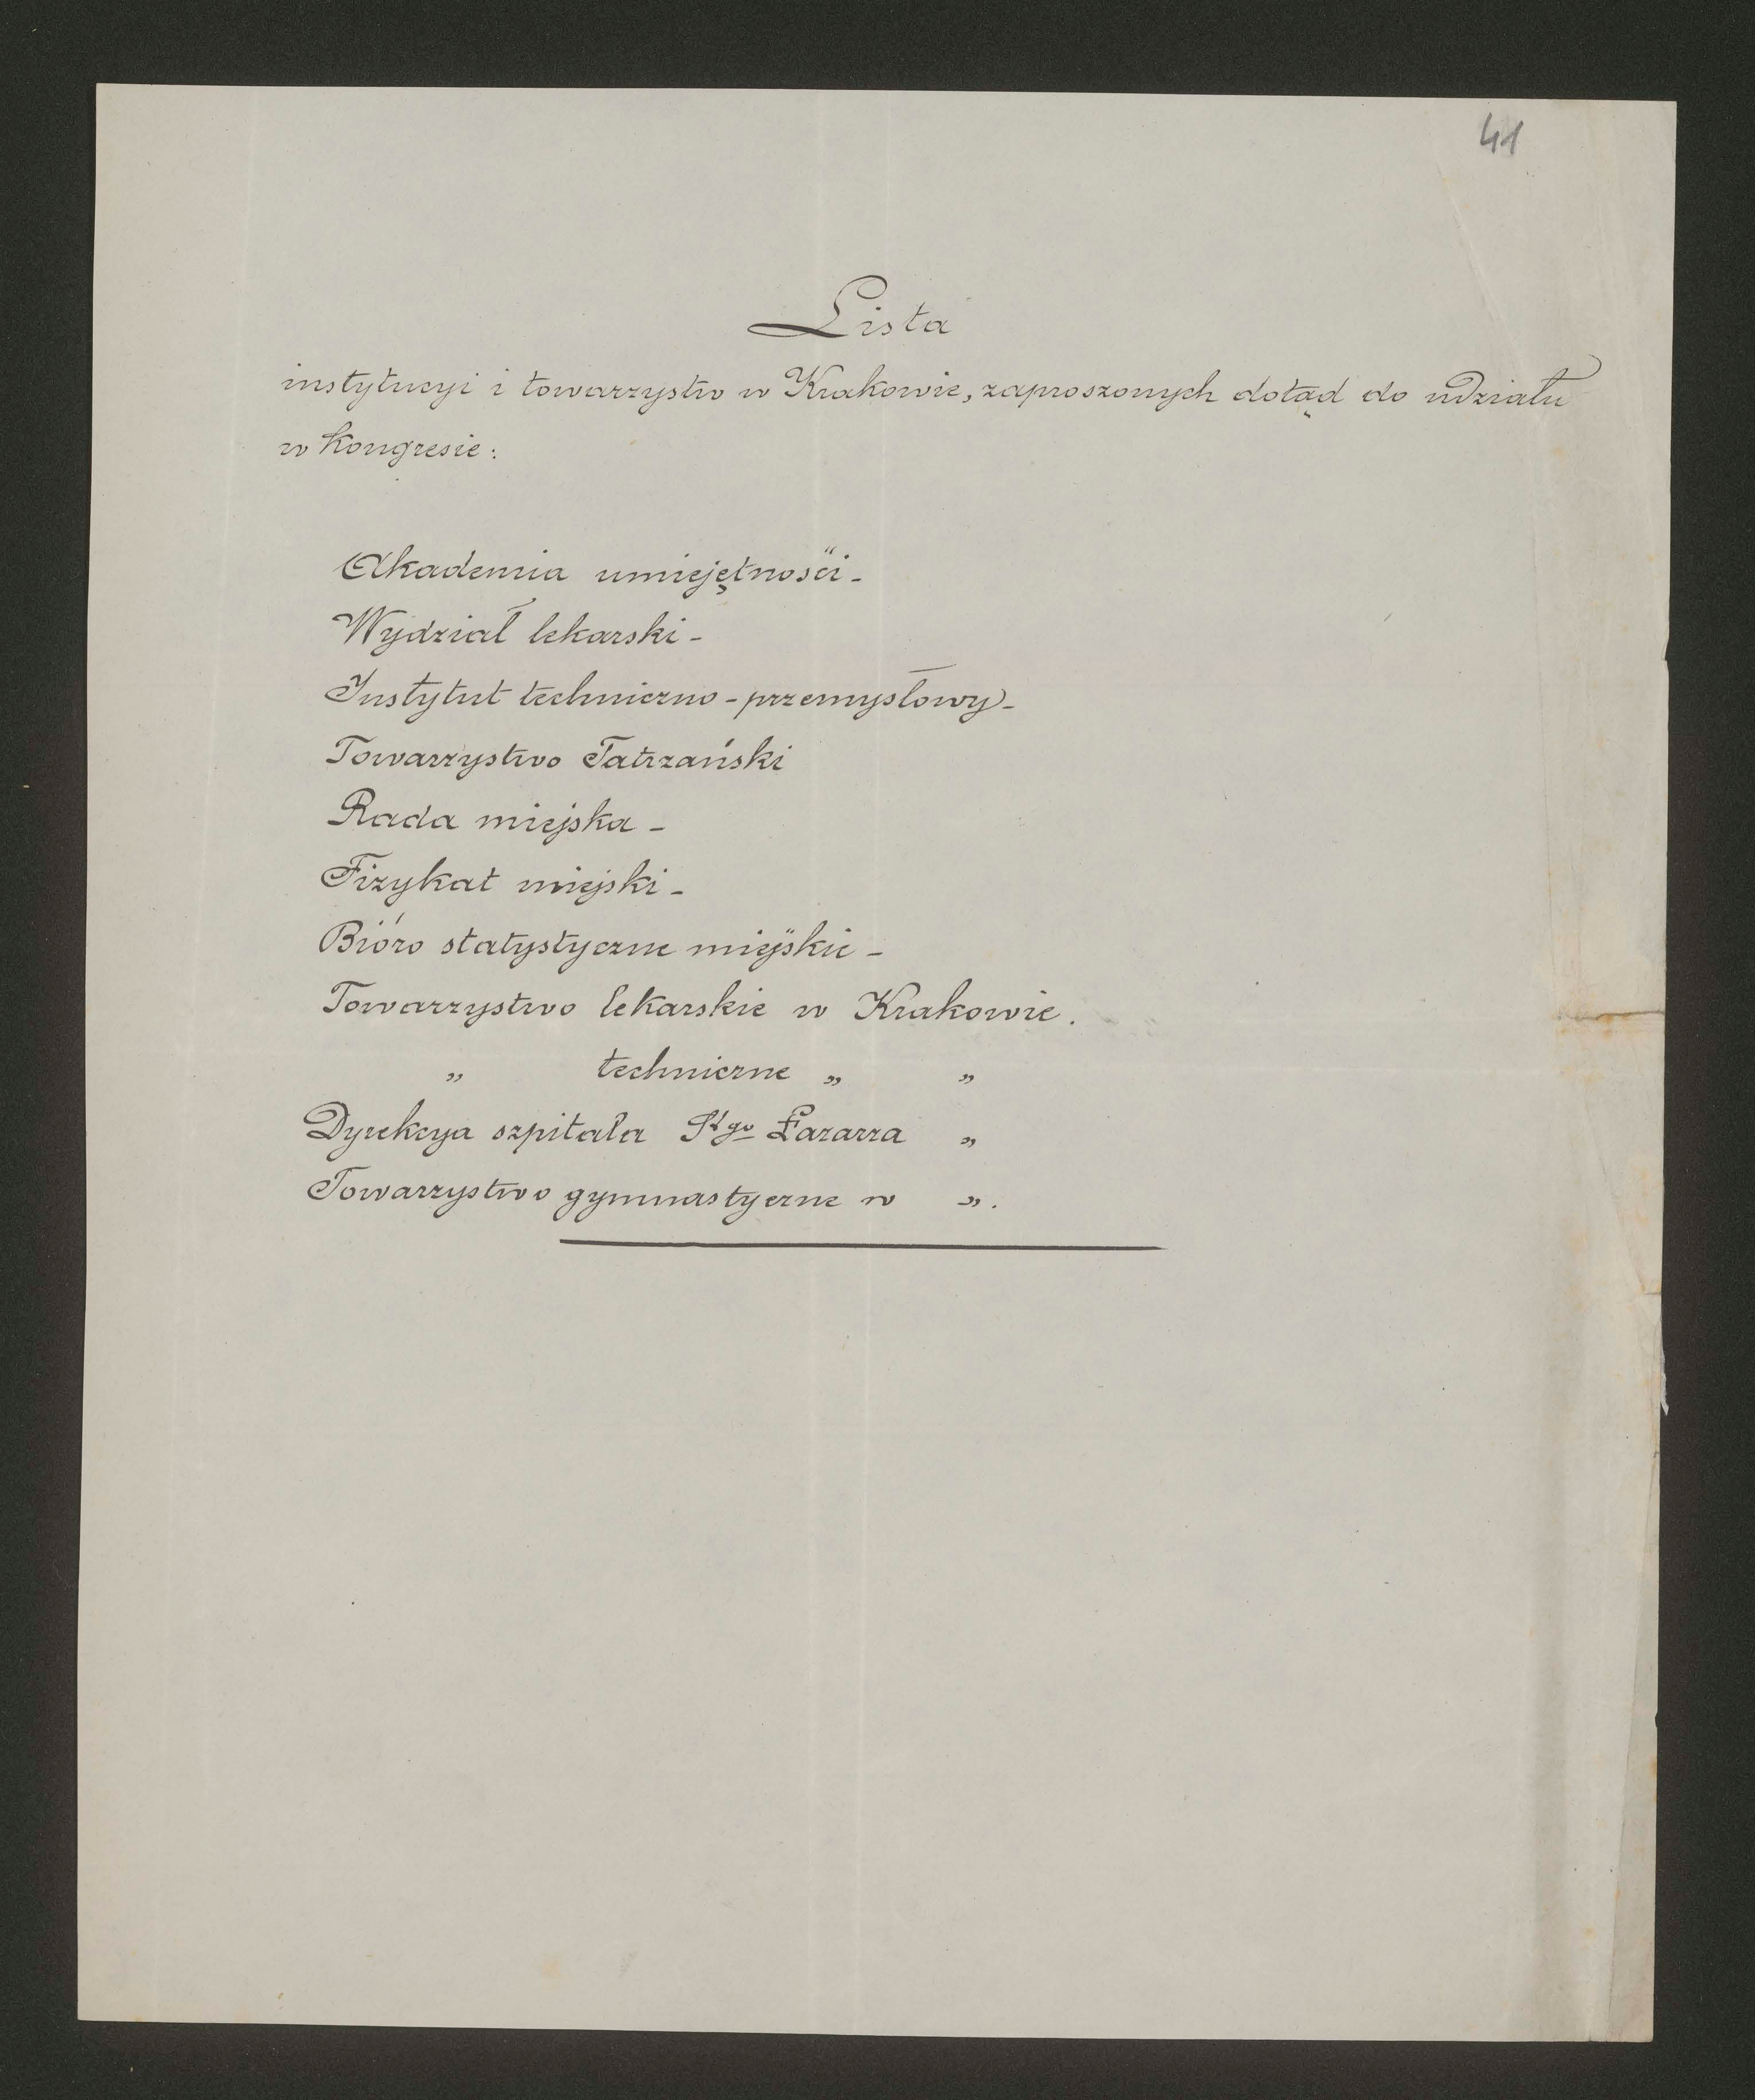 41
Lista
instytucyi i towarzystw w Krakowie, zaproszonych dotąd do udziału
w kongresie:
Akademia umiejętności -
Wydział lekarski -
Instytut techniczno - przemysłowy -
Towarzystwo Tatrzański
Rada miejska -
Fizykat miejski -
Bióro statystyczne miejskie -
Towarzystwo lekarskie w Krakowie.
„ techniczne „ „
Dyrekcya szpitala Sgo Łazarza „
Towarzystwo gymnastyczne w „.